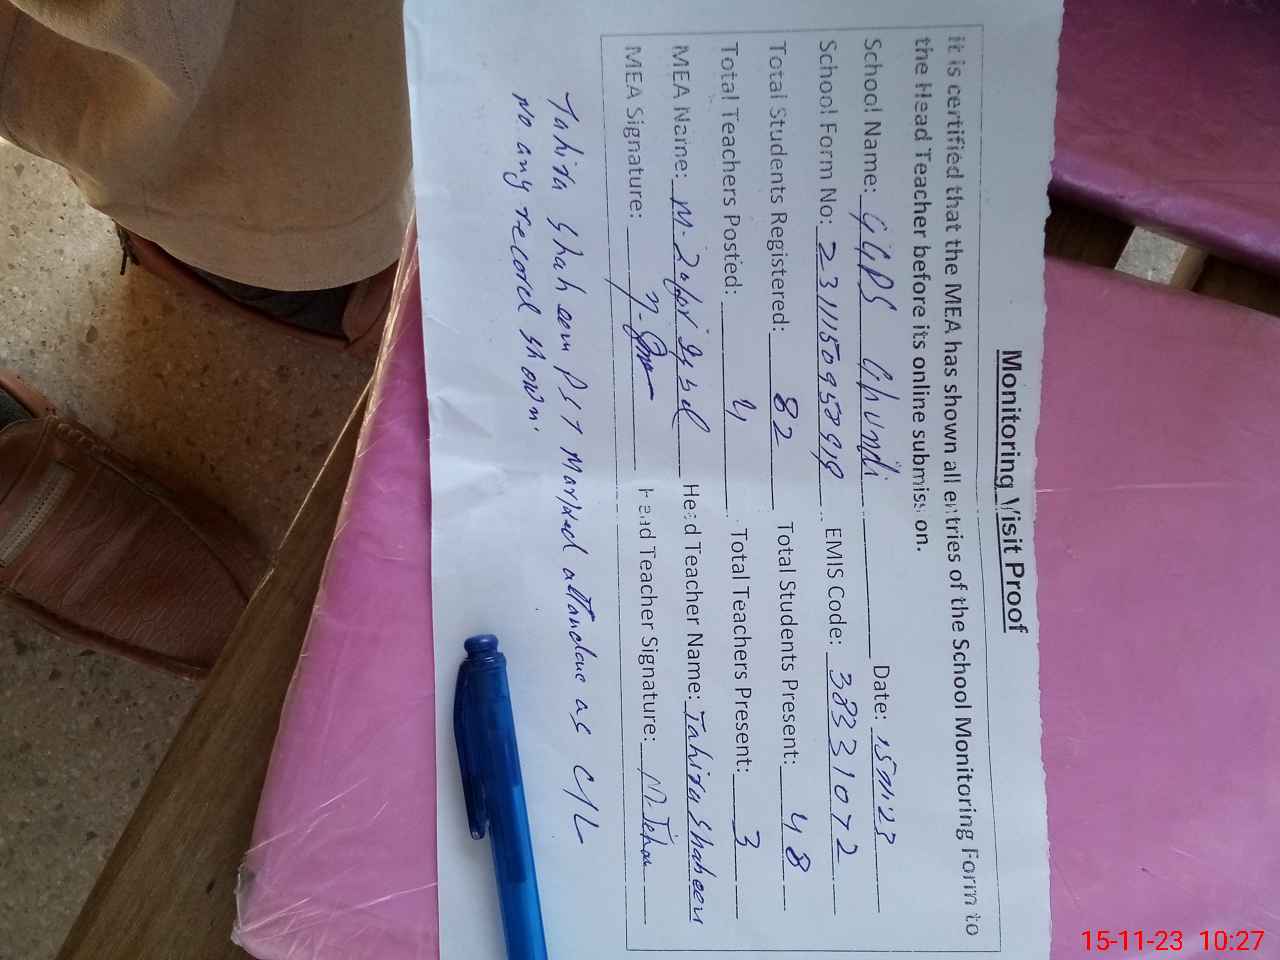 Monitoring Visit Proof
It is certified that the MEA has shown all entries of the School Monitoring Form to
the Head Teacher before its online submission.
School Name: GGPS Ghundi Date: 15-11-23
School Form No: 231115095849 EMIS Code: 38331072
Total Students Registered: 82 Total Students Present: 48
Total Teachers Posted: 4 Total Teachers Present: 3
MEA Name: M. Zafar Iqbal Head Teacher Name: Tahira Shaheen
MEA Signature: Head Teacher Signature:
Tahira Shaheen PST Marked attandane as C/L
No any record shown.
15-11-23 10:27